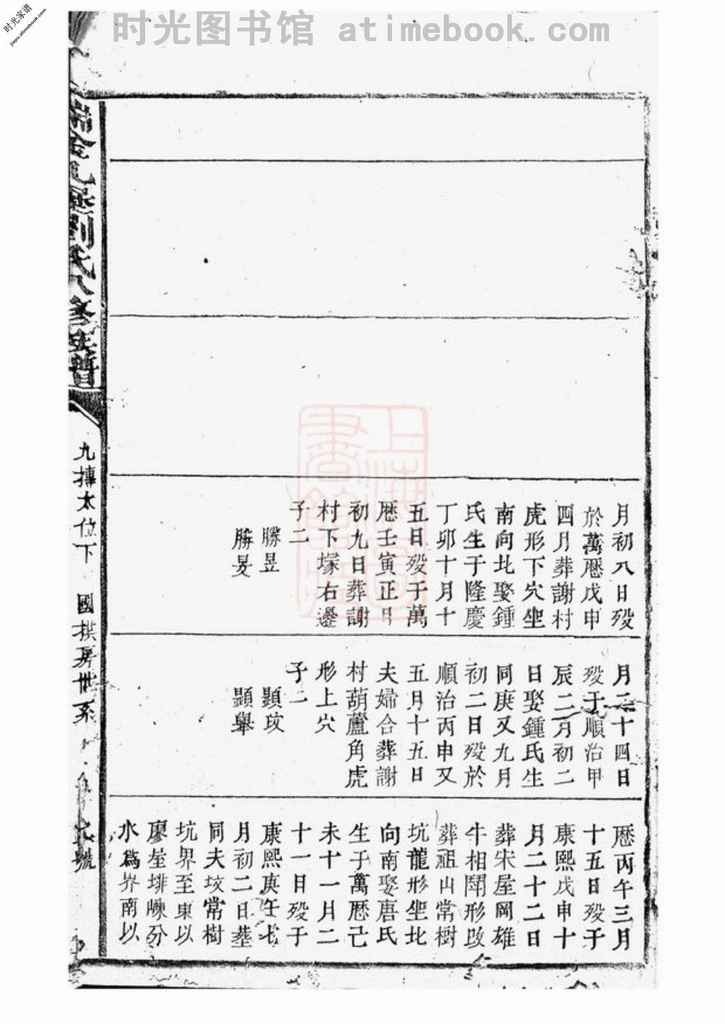 时光图书馆 atimebook.com
时光家谱
月初八日殁
於萬厯戊申
四月葬謝村
虎形下穴坐
南向北娶鍾
氏生于隆慶
丁卯十月十
五日殁于萬
厯壬寅正月
初九日葬謝
村下塚右邊
子二
勝昱
勝旻
月二十四日
殁于順治甲
辰二月初二
日娶鍾氏生
同庚又九月
初二日殁於
順治丙申又
五月十五日
夫婦合葬謝
村葫蘆角虎
形上穴
子二
顯攻
顯舉
厯丙午三月
十五日殁于
康熙戊申十
月二十二日
葬宋屋岡雄
牛相鬭形改
葬祖山常樹
坑龍形坐北
向南娶唐氏
生于萬厯己
未十一月二
十一日殁于
康熙庚午七
月初二日葬
同夫坟常樹
坑界至東以
廖坐排崠分
水爲界南以
劉氏八修族譜
九摶太位下
國棋房世系